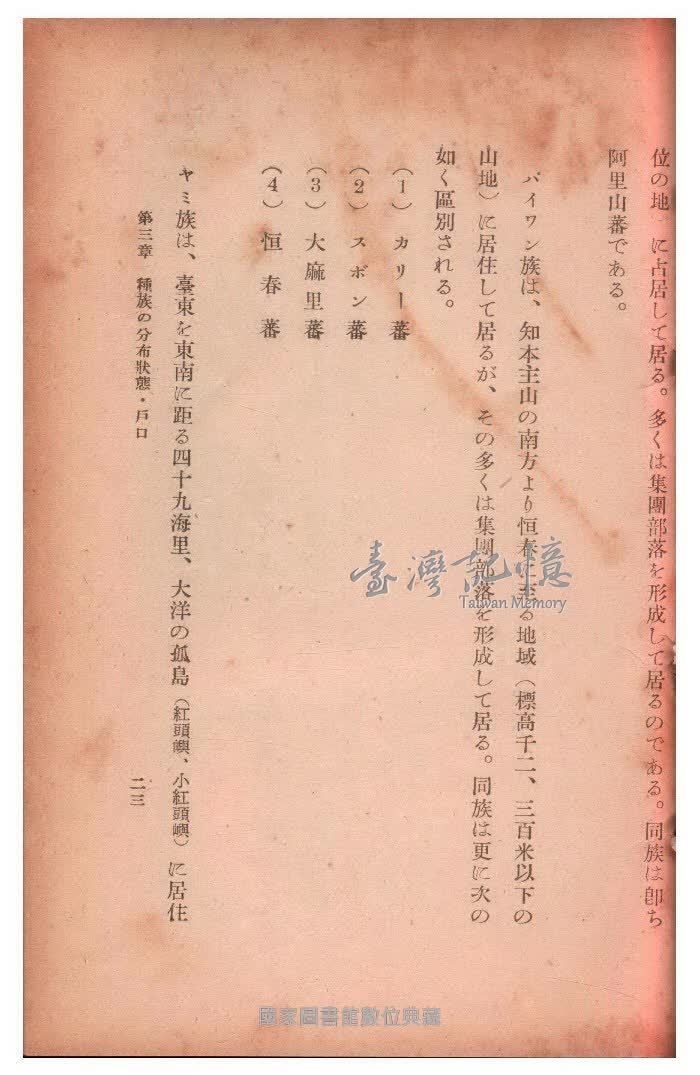 位の地　に占居して居る。多くは集團部落を形成して居るのである。同族は卽ち
阿里山蕃である。
パイワン族は、知本主山の南方より恒春に至る地域（標高千二、三百米以下の
山地）に居住して居るが、その多くは集團部落を形成して居る。同族は更に次の
如く區別される。
（1）カリー蕃
（2）スボン蕃
（3）大麻里蕃
（4）恒春蕃
ヤミ族は、臺東を東南に距る四十九海里、大洋の孤島（紅頭嶼、小紅頭嶼）に居住
第三章　種族の分布狀態・戶口
二三
臺灣記憶
Taiwan Memory
國家圖書館數位典藏